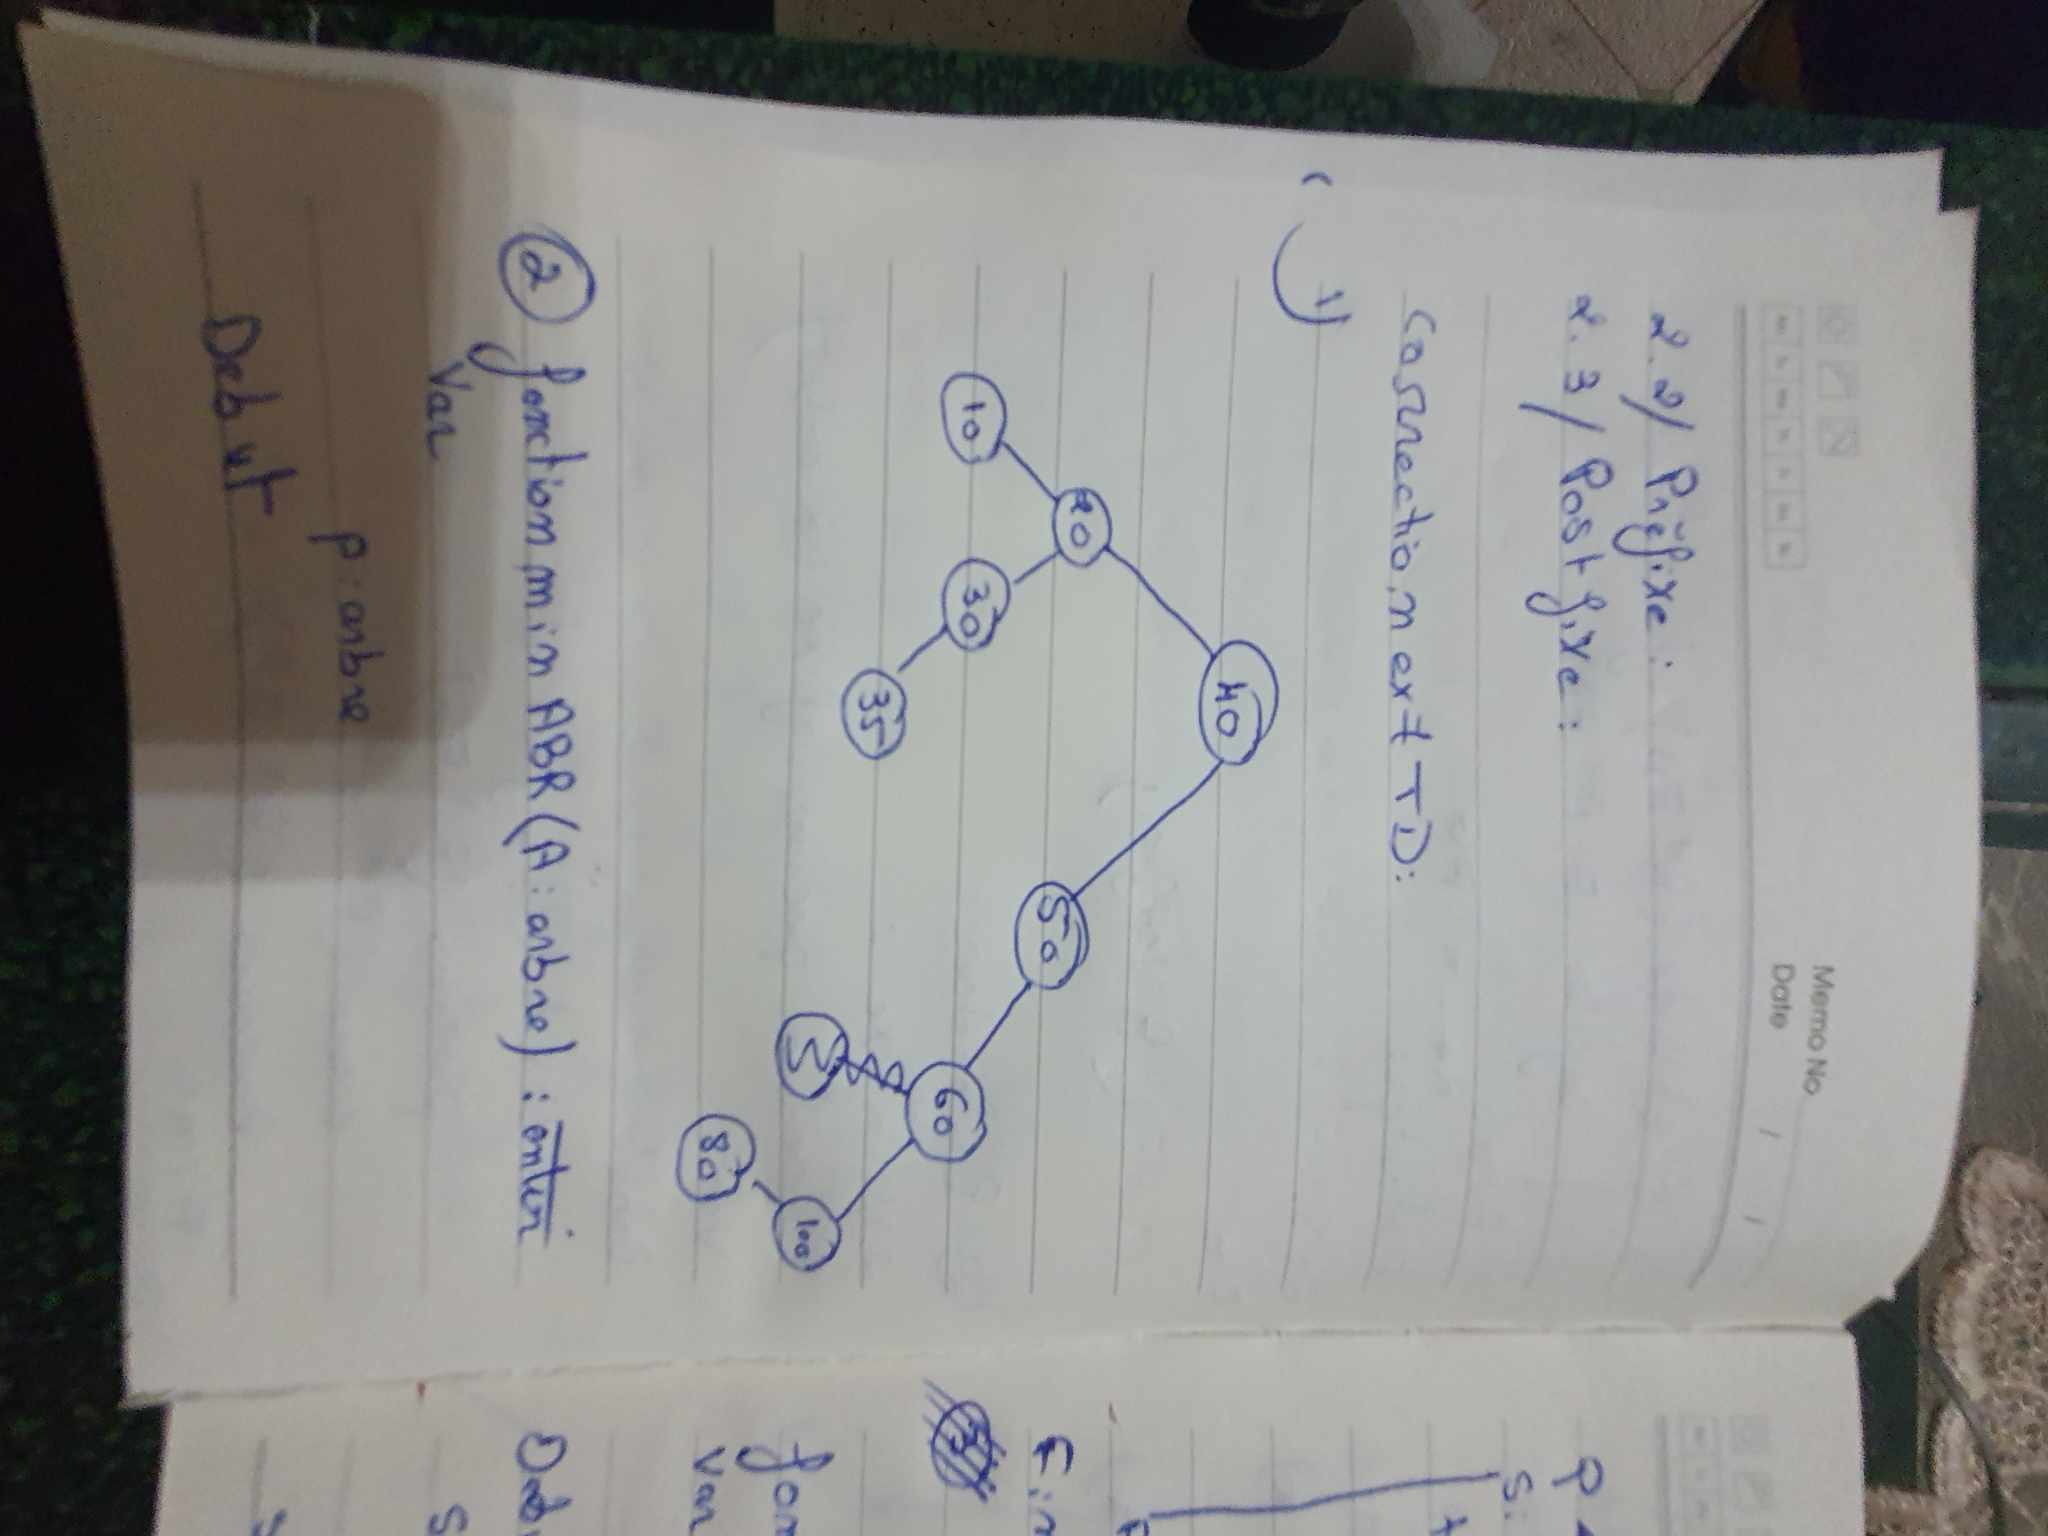 Memo No
Date / /
2.2/ Préfixe :
2.3/ Postfixe :
Correction ex7 TD:
1)
40
20
50
10
30
60
35
100
80
2 fonction min ABR (A: arbre) : entier
Var
p: arbre
Debut
P
S.
F:n
fon
Var
Deb
S